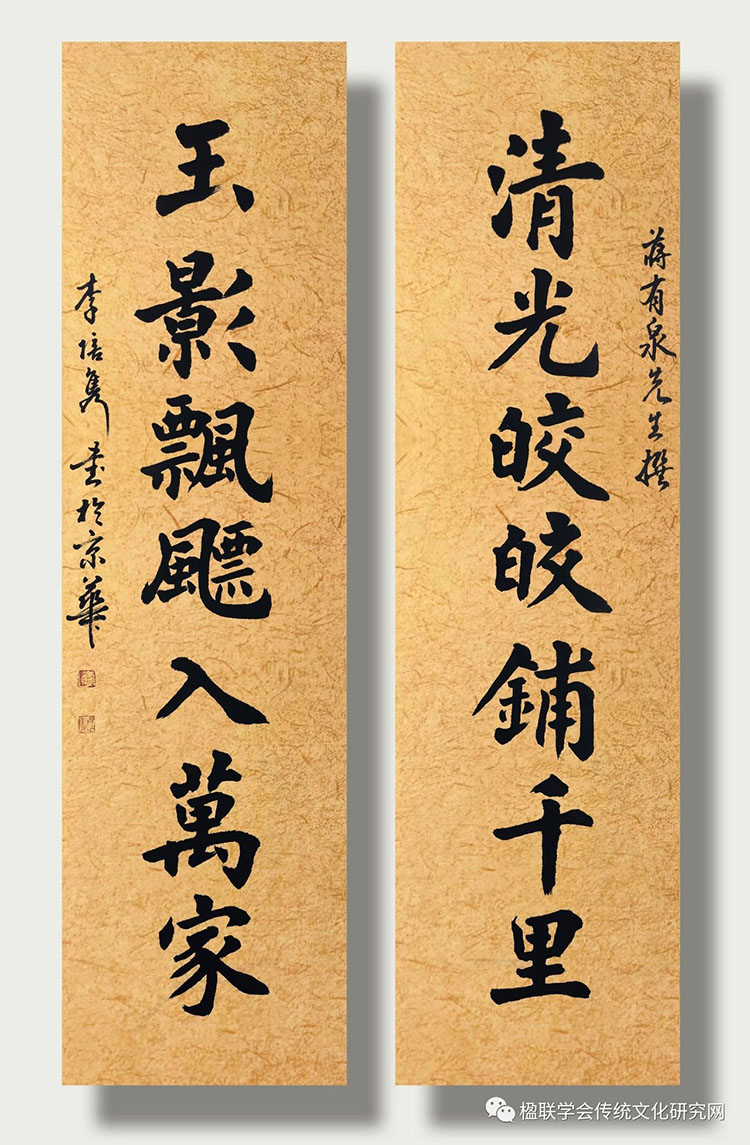 蔣有泉先生撰
清光皎皎鋪千里
玉影飄飄入萬家
李培隽書於京華
楹联学会传统文化研究网